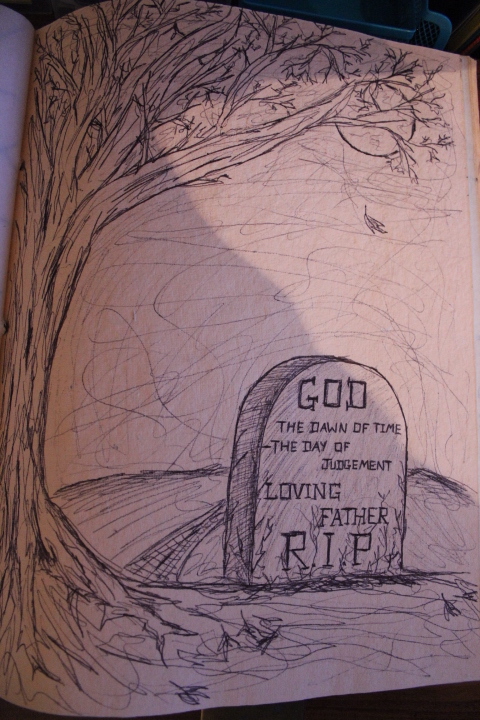 GOD
THE DAWN OF TIME
-THE DAY OF
JUDGEMENT
LOVING
FATHER
R.I.P